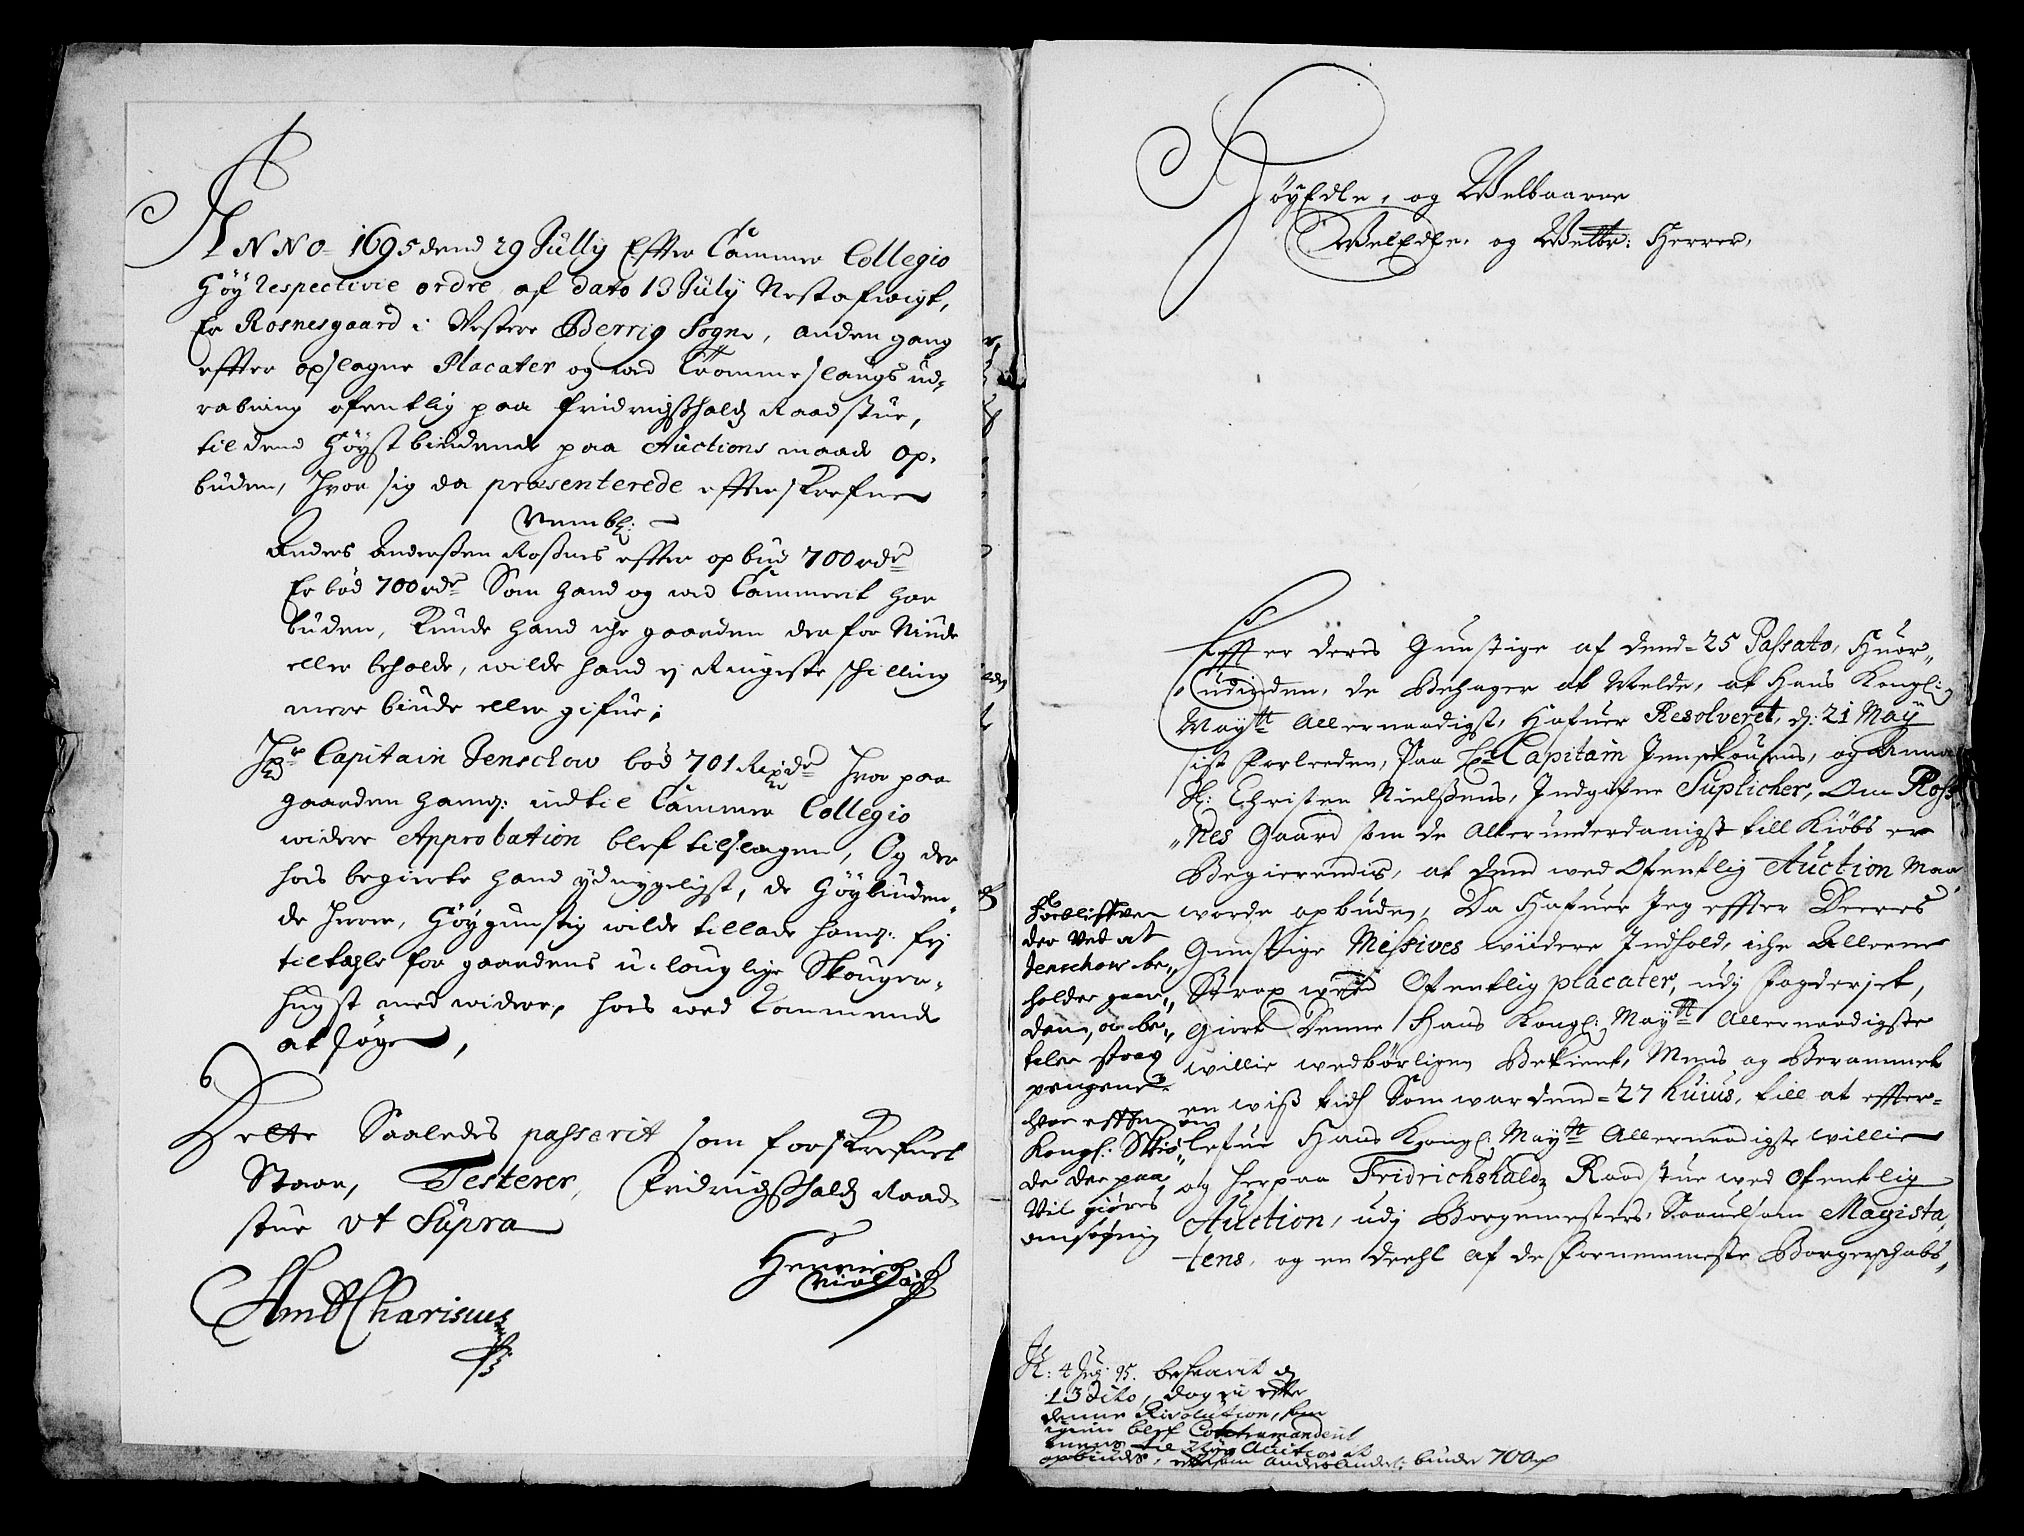 ANNO 1695 dend 29 Jully Efter Cammer Collegio
Høy respective ordre af dato 13 July Nestafwigt,
Er Rosnesgaard i Vester Berrig Sogne, anden gang
effter opslagne Placater og wed Trommeslaugs ud-
robning ofentlig paa Fridrichshalds Raadstue,
til dend Høystbiudende paa Auctions maade op-
buden, hvor sig da præsenterede effterskrefne
Nembl:
Anders Anderssen Rossnes effter opbud 700 rdr
Er bød 700 rdr Som hand og wed Cammerit har
buden, Kunde hand iche gaarden der for Niude
eller beholde, wilde hand ej Ringeste schilling
mere biude eller gifue;
Hr Capitain Jenschow bød 701 Rixdr hvor paa
gaarden hamb: indtil Cammer Collegio
widere Approbation blef tilslagen, Og der
hos begierte hand ydmygeligst, de Høybiuden-
de Herrer, Høygunstig wilde tillade hamb: fri
tiltahle for gaardens u-louglige Skougers
hugst med widere, hos wed Kommende
at søge,
Dette Saaledes passerit som forskrefuet
Staar, Testerer, Fridrichshalds Raad-
stue Ut Supra
Henrich
Nielsøn
Amd Charisius
HøyEdle, og Welbaarne
WelEdle, og Welbr: Herrer,
Effter deres Gunstige af dend 25 Passato, Huor-
udinden, de Behager at Melde, at Hans Kongl:
Maytt Allernaadigst, Hafuer Resolveret, d: 21 May
sist forleeden, Paa Hr Capitain Jenskousens, og Anna
Sl: Christen Nielssens, Indgifne Suplicher, Om Ross-
nes Gaard som de Allerunderdanigst till Kiøbs er
Begierendis, at dend wed Ofentlig Auction Maa
worde opbuden, Da Hafuer Jeg effter Deeres
Gunstige Missives widere Indhold, iche Alleene
Strax wed Ofentlig placater, udj fogderiet,
giort denne Hans Kongl: Maytt Allernaadigste
willie wedbørligen Bekient, Mens og Berammet
en wiss tid Som war dend 27 huius, till at effter-
lefue Hans Kongl: Maytt Allernaadigste willie
og herpaa Fridrichshalds Raadstue wed Ofentlig
Auction, udj Borgemesters, Saauelsom Magista-
tens, og en deehl af de fornemmeste Borgerschabs
Forblifver
der ved at
Jenschow be-
holder gaar-
den, og be-
taler strax
pengene
hvor effter
om
Kongl: Skiø-
de der paa
Vil giøres
ansøgning
R: 4 Aug: 95. besuarit d
13 dito, dog ei effter
denne Resolution, som
igien blef Contramanderit
mens til 2den Auction at
opbiudes, effter som Anders Anders: biuder 700 rdr